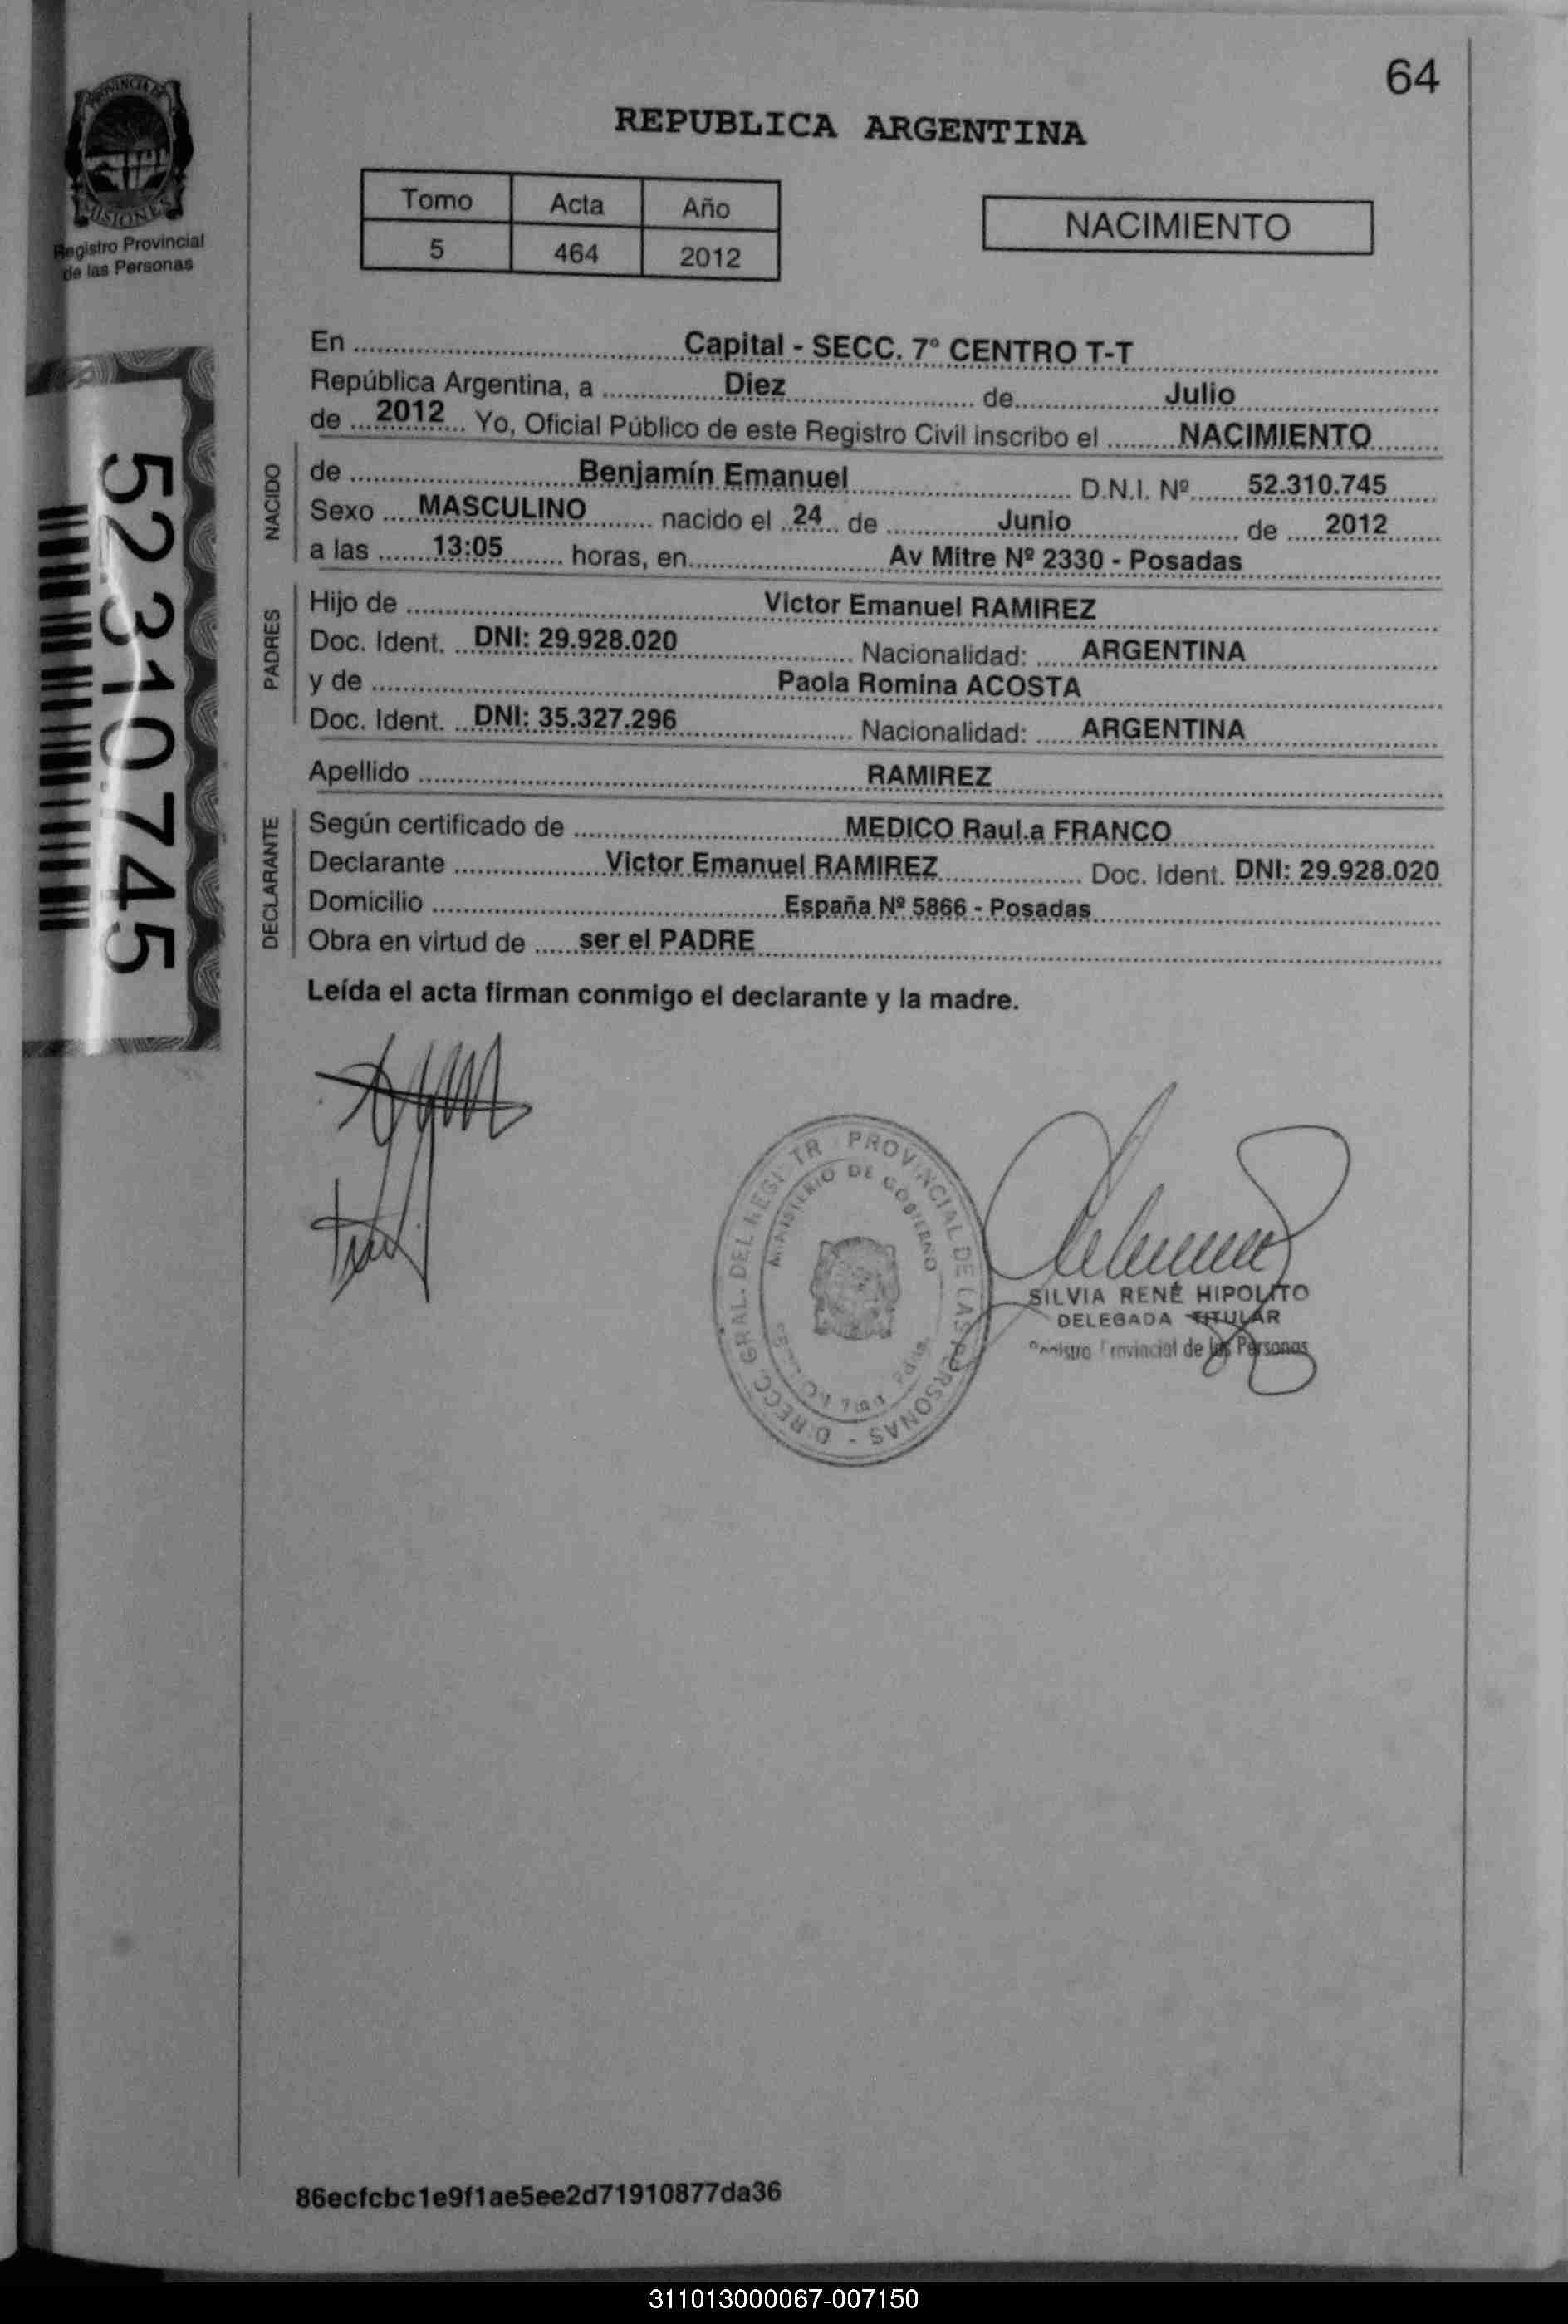 64
REPUBLICA ARGENTINA
PROVINCIA DE
MISIONES
Registro Provincial
de las Personas
Tomo Acta Año
5 464 2012
NACIMIENTO
52.310.745
En Capital - SECC. 7º CENTRO T-T
República Argentina, a Diez de Julio
de 2012 Yo, Oficial Público de este Registro Civil inscribo el NACIMIENTO
NACIDO
de Benjamín Emanuel D.N.I. Nº 52.310.745
Sexo MASCULINO nacido el 24 de Junio de 2012
a las 13:05 horas, en Av Mitre Nº 2330 - Posadas
PADRES
Hijo de Victor Emanuel RAMIREZ
Doc. Ident. DNI: 29.928.020 Nacionalidad: ARGENTINA
y de Paola Romina ACOSTA
Doc. Ident. DNI: 35.327.296 Nacionalidad: ARGENTINA
Apellido RAMIREZ
DECLARANTE
Según certificado de MEDICO Raul.a FRANCO
Declarante Victor Emanuel RAMIREZ Doc. Ident. DNI: 29.928.020
Domicilio España Nº 5866 - Posadas
Obra en virtud de ser el PADRE
Leída el acta firman conmigo el declarante y la madre.
PROVINCIAL DE LAS PERSONAS
MINISTERIO DE GOBIERNO
SILVIA RENÉ HIPOLITO
DELEGADA TITULAR
Registro Provincial de las Personas
86ecfcbc1e9f1ae5ee2d71910877da36
311013000067-007150